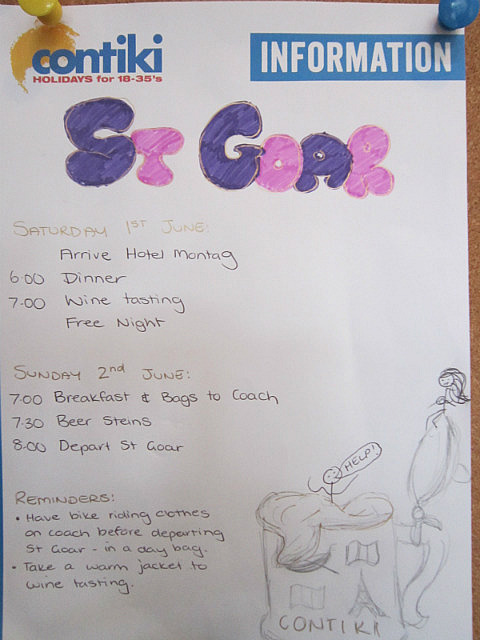 contiki
HOLIDAYS for 18-35's
INFORMATION
ST GOAR
SATURDAY 1ST JUNE:
Arrive Hotel Montag
6:00 Dinner
7:00 Wine tasting
Free Night
SUNDAY 2nd JUNE:
7:00 Breakfast & Bags to Coach
7:30 Beer Steins
8:00 Depart St Goar
REMINDERS:
• Have bike riding clothes
on coach before departing
St Goar - in a day bag.
• Take a warm jacket to
wine tasting.
HELP!
CONTIKI